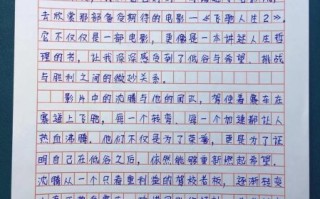 去欣赏那部备受期待的电影—《飞驰人生2》,
它不仅仅是一部电影,更像是一本讲述人生哲
理的书,让我深深感受到了低谷与希望、挑战
与胜利之间的微妙关系。
影片中的沈腾与他的团队,驾驶着赛车在
赛道上飞驰,每一个转弯、每一个加速都让人
热血沸腾。他们不仅是为了荣誉,更是为了证
明自己在低谷之后,依然能够重新燃起希望。
沈腾从一个只看重利益的驾校老板,逐渐转变